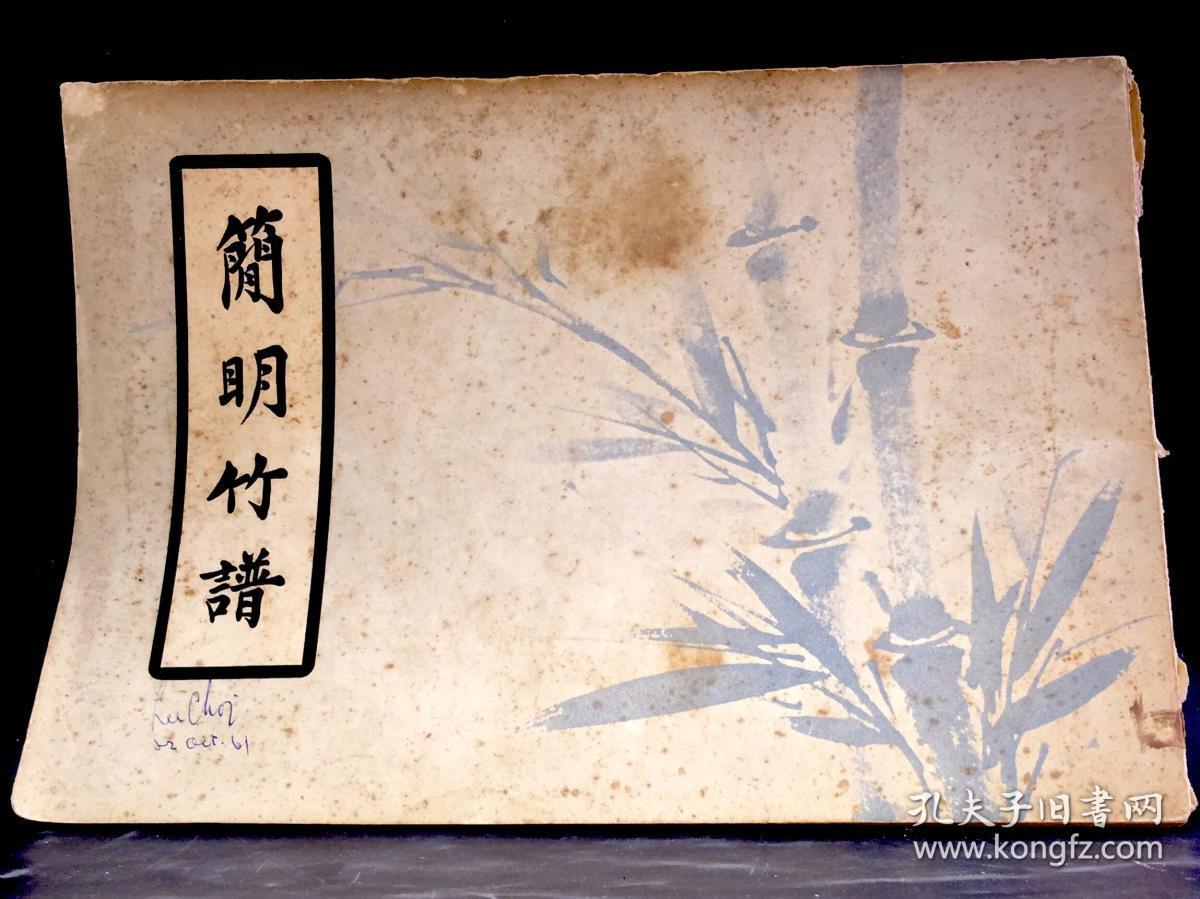 簡明竹譜
Lee Choi
22 Oct. 61
孔夫子旧书网
www.kongfz.com